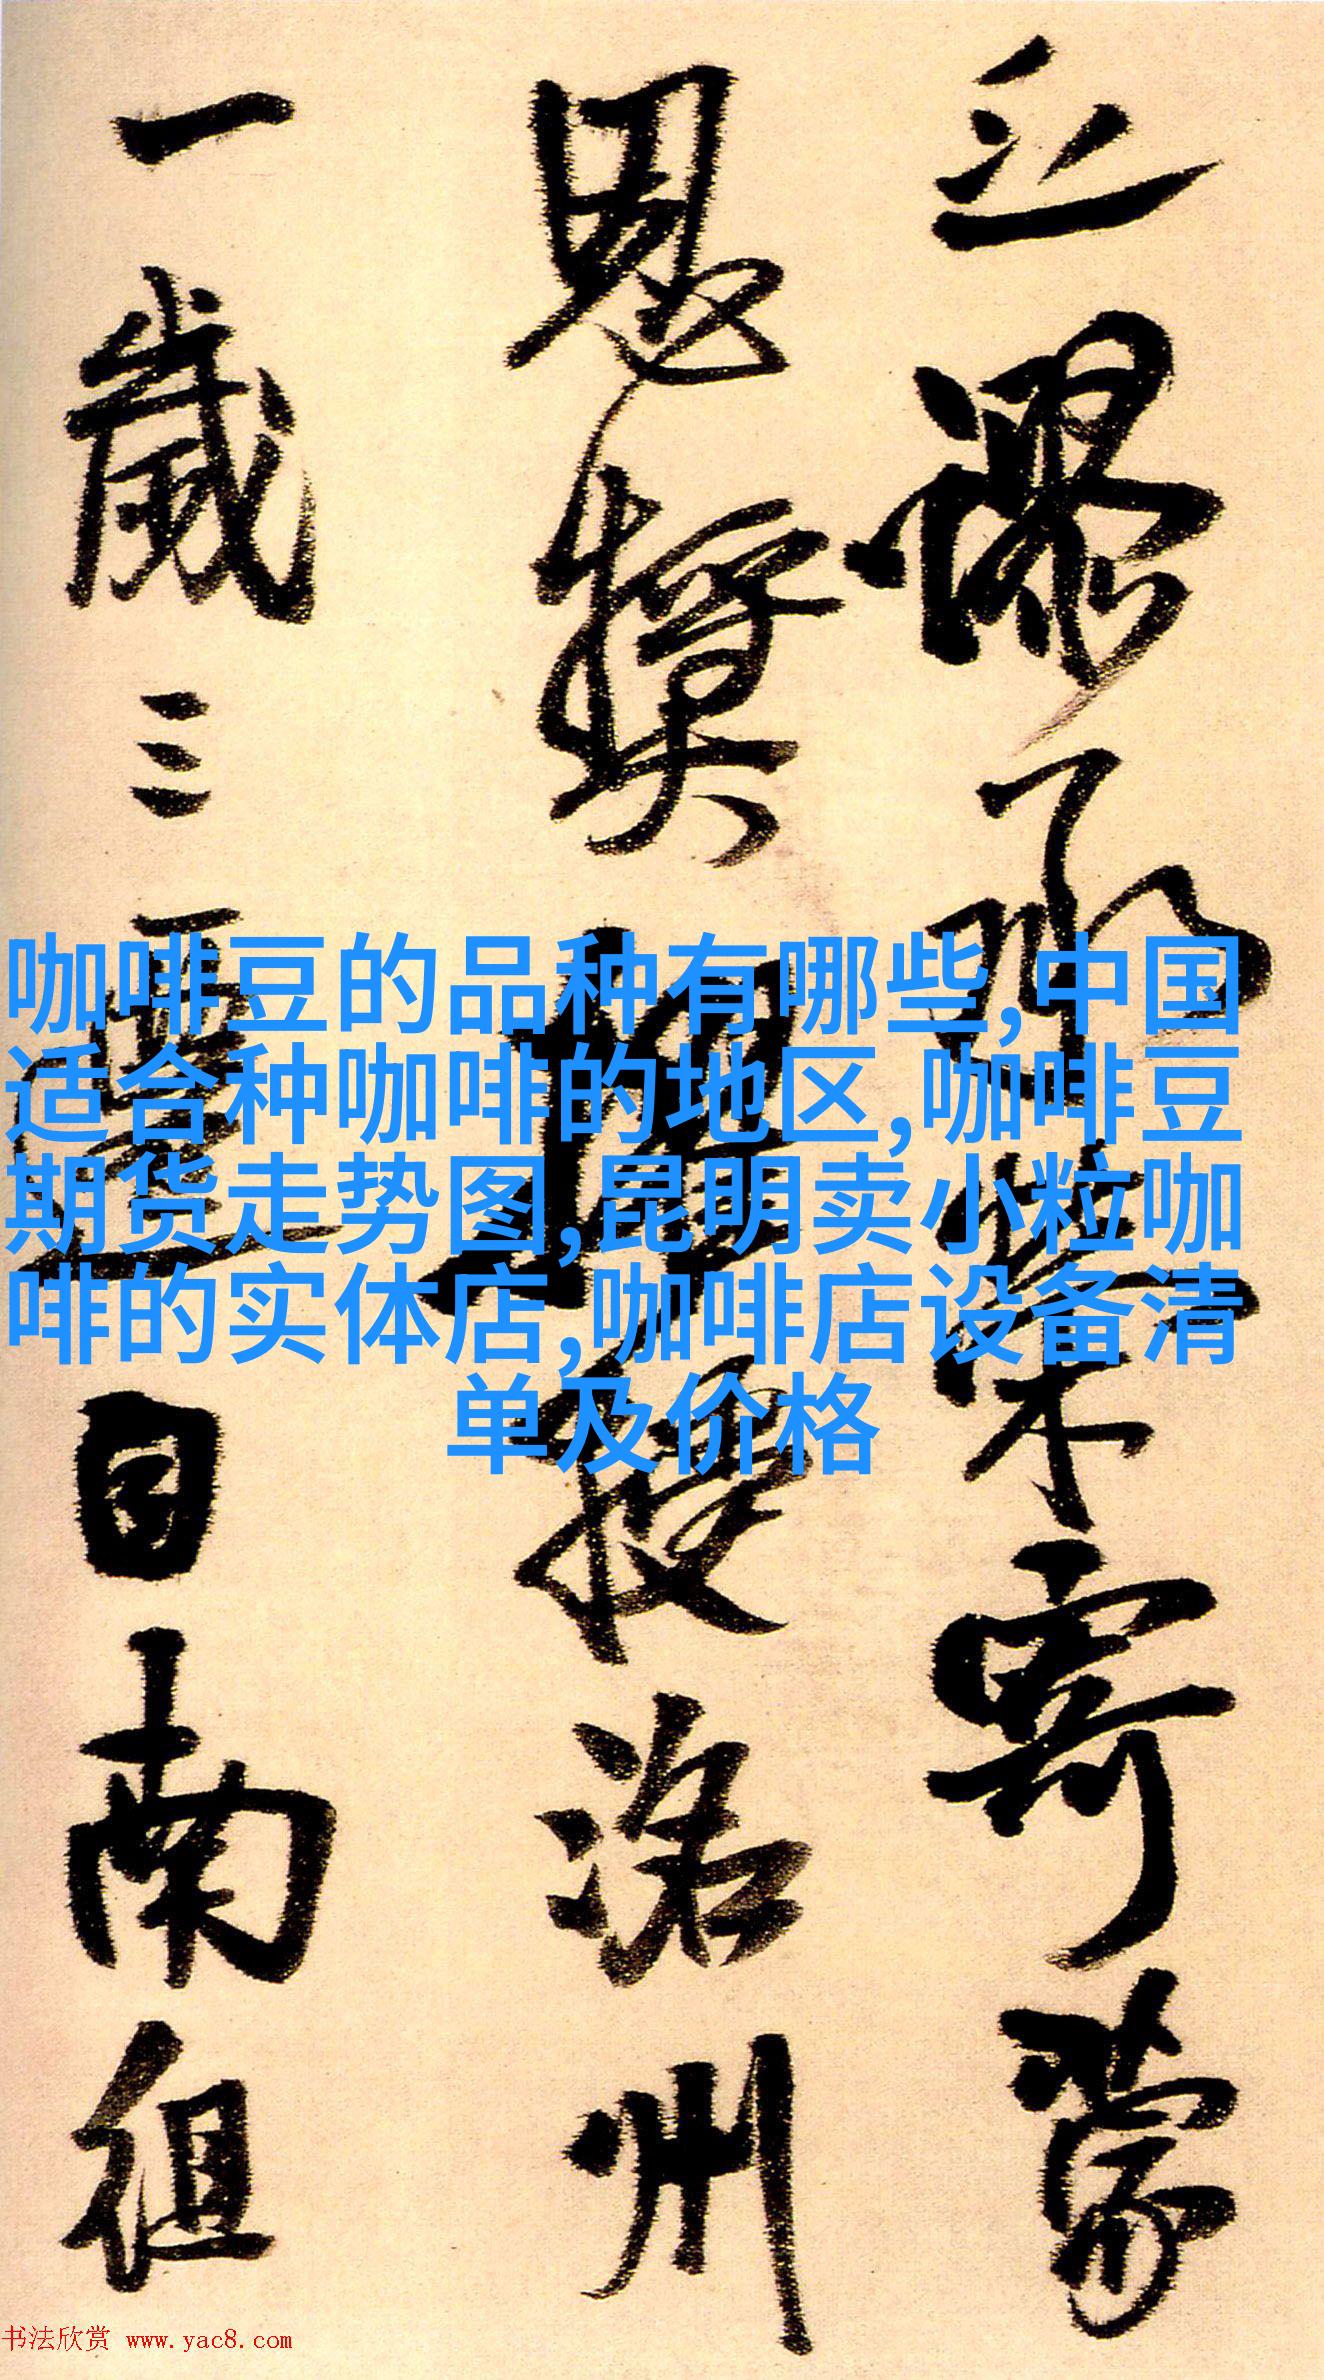 謬承榮寄蒙
恩獎擢授洛州
一歲三遷自南徂
咖啡豆的品种有哪些,中国
适合种咖啡的地区,咖啡豆
期货走势图,昆明卖小粒咖
啡的实体店,咖啡店设备清
单及价格
书法欣赏 www.yac8.com